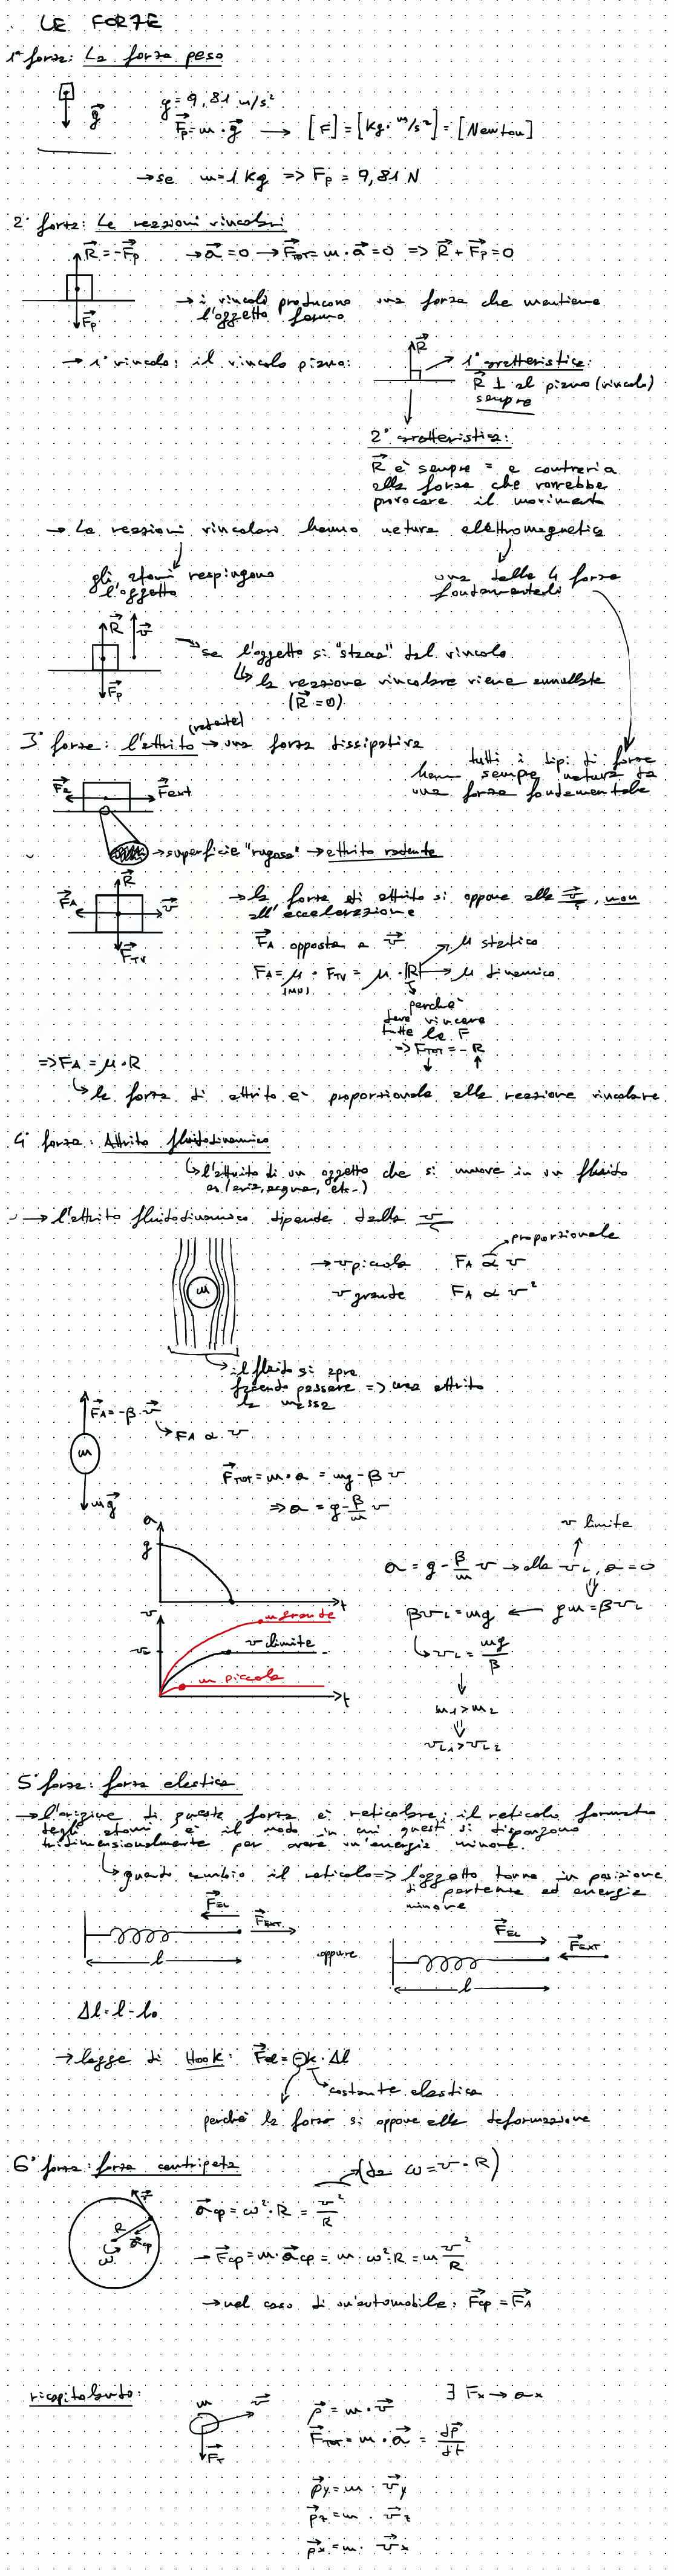 LE FORZE
1ª forza: La forza peso
g = 9,81 m/s²
g⃗
F⃗p = m · g⃗ → [F] = [Kg · m/s²] = [Newton]
→ se m = 1 Kg => Fp = 9,81 N
2ª forza: Le reazioni vincolari
R⃗ = -F⃗p → a⃗ = 0 → F⃗TOT = m · a⃗ = 0 => R⃗ + F⃗p = 0
F⃗p
→ i vincoli producono una forza che mantiene
l'oggetto fermo
→ 1° vincolo: il vincolo piano:
R⃗
1ª caratteristica:
R⃗ ⊥ al piano (vincolo)
sempre
2ª caratteristica:
R⃗ è sempre = e contraria
alla forza che vorrebbe
provocare il movimento
→ Le reazioni vincolari hanno natura elettromagnetica
gli atomi respingono
l'oggetto
una delle 4 forze
fondamentali
R⃗ v⃗
F⃗p
→ se l'oggetto si "stacca" dal vincolo
↳ la reazione vincolare viene annullata
(R⃗ = 0)
(radente)
3ª forza: l'attrito → una forza dissipativa
tutti i tipi di forze
hanno sempre natura da
una forza fondamentale
F⃗a F⃗ext
→ superficie "rugosa" → attrito radente
R⃗
F⃗A v⃗
F⃗TV
→ la forza di attrito si oppone alla v⃗, non
all'accelerazione
F⃗A opposta a v⃗
μ statico
FA = μ · FTV = μ · |R| → μ dinamico
(MU)
perché
deve vincere
tutte le F
=> F⃗TOT = -R
=> FA = μ · R
↳ la forza di attrito è proporzionale alla reazione vincolare
4ª forza: Attrito fluidodinamico
↳ l'attrito di un oggetto che si muove in un fluido
es (aria, acqua, etc..)
→ l'attrito fluidodinamico dipende dalla v
proporzionale
→ v piccola FA ∝ v
v grande FA ∝ v²
m
il fluido si apre
facendo passare => crea attrito
la massa
F⃗A = -β · v⃗
↳ FA ∝ v
m
mg⃗
F⃗TOT = m · a = mg - β v
=> a = g - β/m v
a
g
t
v
vL
m grande
v limite
m piccola
t
v limite
a = g - β/m v → alla vL, a = 0
βvL = mg ← gm = βvL
↳ vL = mg/β
m1 > m2
vL1 > vL2
5ª forza: forza elastica
→ l'origine di questa forza è reticolare; il reticolo formato
degli atomi è il modo in cui questi si dispongono
tridimensionalmente per avere un'energia minore.
↳ quando cambio il reticolo => l'oggetto torna in posizione
di partenza ed energia
minore
F⃗EL
F⃗EXT
l
oppure
F⃗EL
F⃗EXT
l
Δl = l - l0
→ legge di Hook: F⃗el = -k · Δl
costante elastica
perché la forza si oppone alla deformazione
6ª forza: forza centripeta
(da ω = v · R)
v⃗
R
a⃗cp
ω
a⃗cp = ω² · R = v²/R
→ F⃗cp = m · a⃗cp = m · ω² · R = m v²/R
→ nel caso di un'automobile: F⃗cp = F⃗A
ricapitolando:
m v⃗
F⃗T
p⃗ = m · v⃗
∃ Fx → ax
F⃗TOT = m · a⃗ = dp⃗/dt
p⃗y = m · v⃗y
p⃗z = m · v⃗z
p⃗x = m · v⃗x